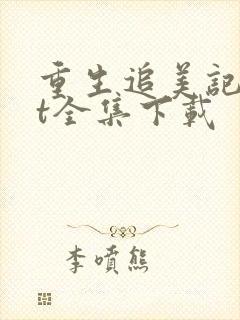 重生追美記
t全集下載
李噴熊